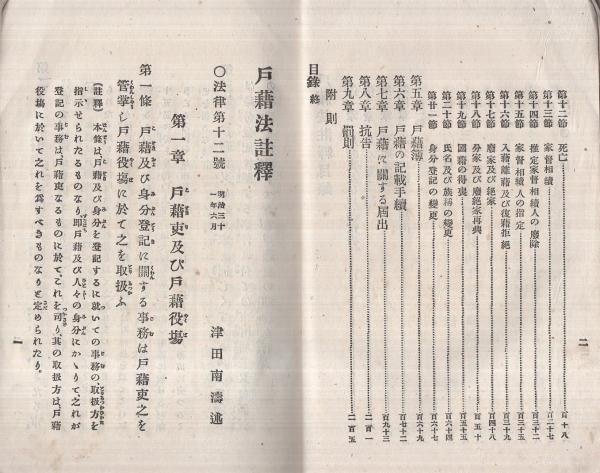 二
第十二節 死亡 百十八
第十三節 家督相續 百二十七
第十四節 推定家督相續人の廢除 百三十二
第十五節 家督相續人の指定 百三十五
第十六節 入籍離籍及び復籍拒絕 百三十九
第十七節 廢家及び絕家 百四十八
第十八節 分家及び廢絕家再興 百五十
第十九節 國籍の得喪 百五十五
第二十節 氏名及び族稱の變更 百六十四
第廿一節 身分登記の變更 百六十七
第五章 戶籍簿
第六章 戶籍の記載手續 百七十二
第七章 戶籍に關する屆出 百九十三
第八章 抗告 二百一
第九章 罰則 二百五
附則
目錄 終
戶籍法註釋
津田南濤述
〇法律第十二號 明治三十一年六月
第一章 戶籍吏及び戶籍役場
第一條 戶籍及び身分登記に關する事務は戶籍吏之を
管掌し戶籍役場に於て之を取扱ふ
(註釋) 本條は戶籍及び身分を登記するに就いての事務の取扱方を
指示せられたるものなり、即戶籍及び人々の身分にかゝりて、之れが
登記の事務は戶籍吏なるものに於て、これを司り、其の取扱方は戶籍
役場に於いて之れを爲すべきものなりと定められたり。
一